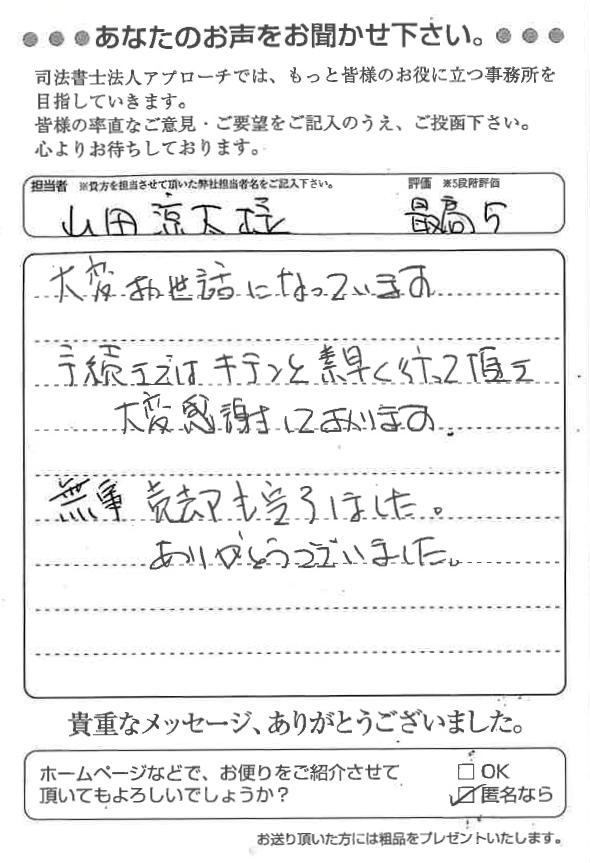 ●●●あなたのお声をお聞かせ下さい。●●●
司法書士法人アプローチでは、もっと皆様のお役に立つ事務所を
目指していきます。
皆様の率直なご意見・ご要望をご記入のうえ、ご投函下さい。
心よりお待ちしております。
担当者 ※貴方を担当させて頂いた弊社担当者名をご記入下さい。 評価 ※5段階評価
山田涼太様 最高5
大変お世話になっています
手続きではキチンと素早く行って頂き
大変感謝しております。
無事 売却も完了しました。
ありがとうございました。
貴重なメッセージ、ありがとうございました。
ホームページなどで、お便りをご紹介させて
頂いてもよろしいでしょうか？
□ OK
☑ 匿名なら
お送り頂いた方には粗品をプレゼントいたします。